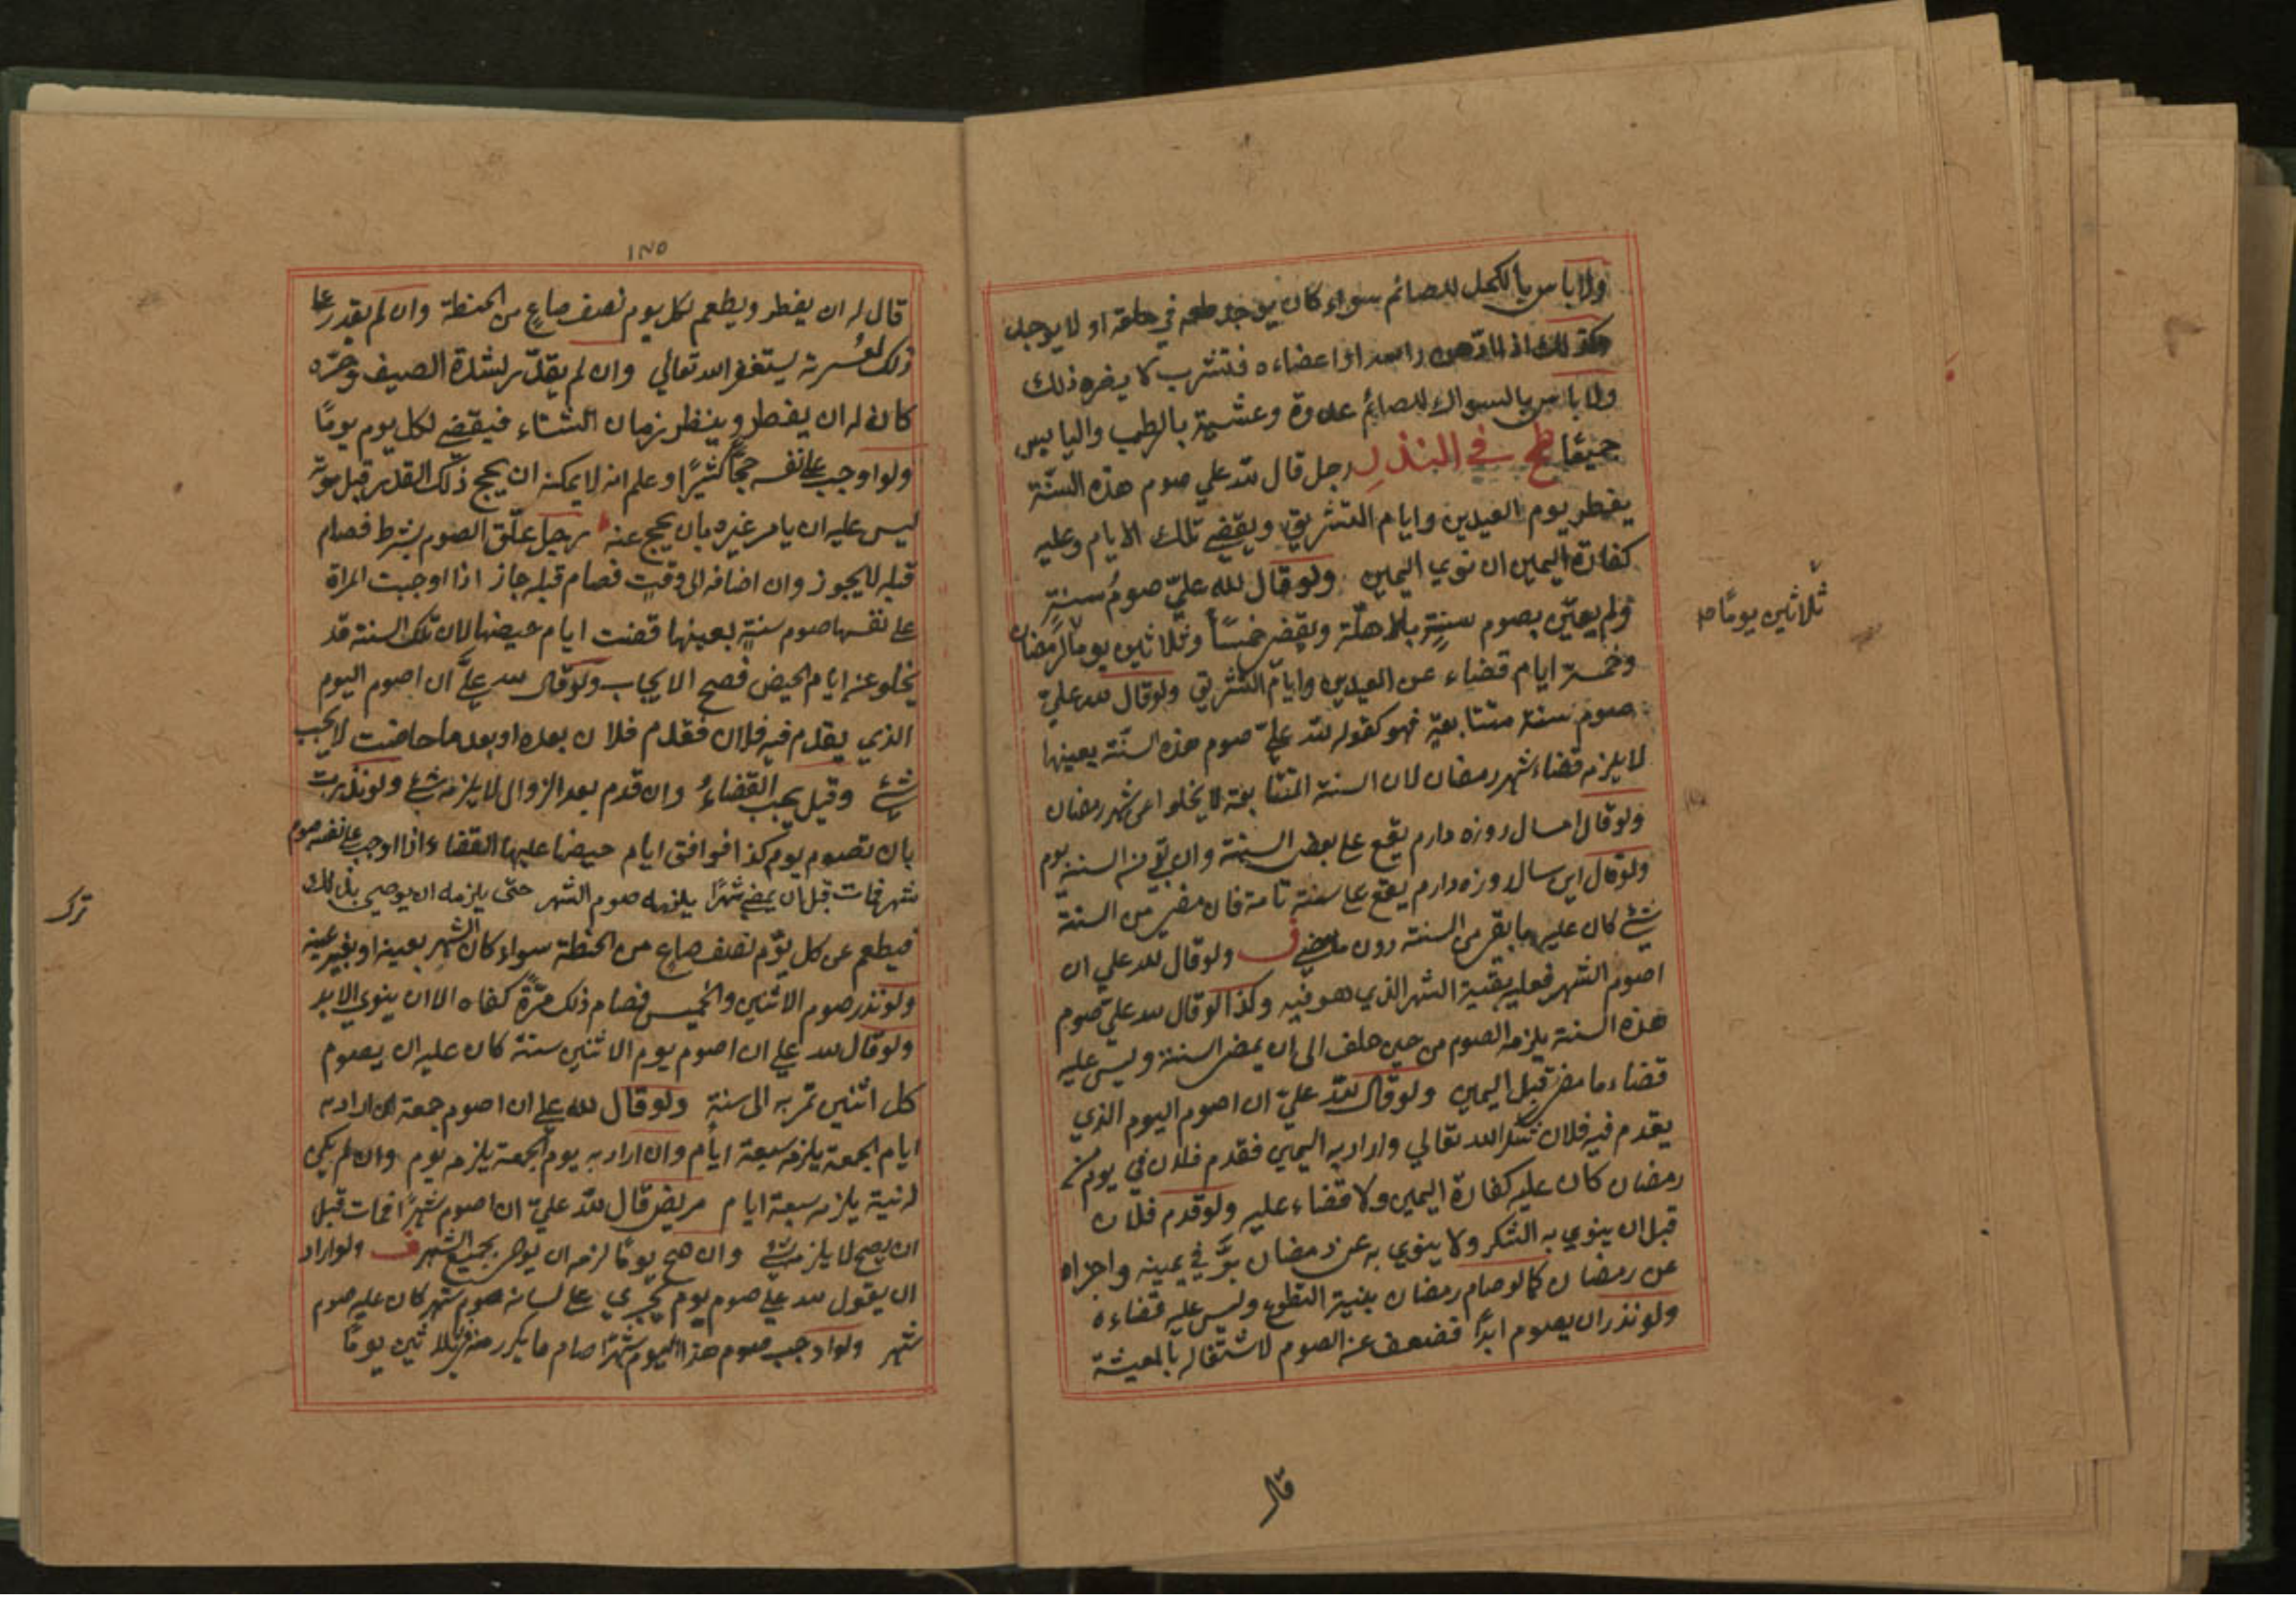 ولا باس بالكحل للصائم سواء كان يوجد طعمه في حلقه او لا يوجد
وكذلك اذا ادهن راسه او اعضاءه فتشرب لا يضره ذلك
ولا باس بالسواك للصائم غدوة وعشية بالرطب واليابس
جميعًا في النذر رجل قال لله علي صوم هذه السنة
يفطر يوم العيدين وايام التشريق ويقضي تلك الايام وعليه
كفارة اليمين ان نوي اليمين ولو قال لله عليّ صوم سنةٍ
ولم يعيّن يصوم سنةٍ بالاهلّة ويقضي خمسًا وثلاثين يومًا لرمضان
وخمسة ايام قضاء عن العيدين وايام التشريق ولو قال لله عليّ
صوم سنة متتابعة فهو كقوله لله عليّ صوم هذه السنة بعينها
لا يلزمه قضاء شهر رمضان لان السنة المتتابعة لا يخلوا عن شهر رمضان
ولو قال امسال روزه دارم يقع علي بعض السنة وان بقي من السنة يوم
ولو قال اين سال روزه دارم يقع علي سنة تامة فان مضي من السنة
شئ كان عليه ما بقي من السنة دون ما مضي ف ولو قال لله علي ان
اصوم الشهر فعليه بقية الشهر الذي هو فيه وكذا لو قال لله عليّ صوم
هذه السنة يلزمه الصوم من حين حلف الى ان يمضي السنة وليس عليه
قضاء ما مضي قبل اليمين ولو قال لله عليّ ان اصوم اليوم الذي
يقدم فيه فلان شكرا لله تعالي واراد به اليمين فقدم فلان في يوم من
رمضان كان عليه كفارة اليمين ولا قضاء عليه ولو قدم فلان
قبل ان ينوي به الشكر ولا ينوي به عن رمضان برّ في يمينه واجزاه
عن رمضان كما لو صام رمضان بنية التطوع وليس عليه قضاءه
ولو نذر ان يصوم ابدًا فضعف عن الصوم لاشتغاله بالمعيشة
ثلاثين يومًا
قال
١٢٥
قال له ان يفطر ويطعم لكل يوم نصف صاعٍ من الحنطة وان لم يقدر علي
ذلك لعسرته يستغفر الله تعالي وان لم يقدر لشدة الصيف وحرّه
كان له ان يفطر وينظر زمان الشتاء فيقضي لكل يوم يومًا
ولو اوجب علي نفسه حجًا كثيرًا وعلم انه لا يمكنه ان يحج ذلك القدر قبل موته
ليس عليه ان يامر غيره بان يحج عنه رجل علّق الصوم بشرط فصام
قبله لا يجوز وان اضافه الى وقتٍ فصام قبله جاز اذا اوجبت المراة
علي نفسها صوم سنةٍ بعينها قضت ايام حيضها لان تلك السنة قد
يخلو عن ايام الحيض فصح الايجاب ولو قال لله عليّ ان اصوم اليوم
الذي يقدم فيه فلان فقدم فلان بعده او بعد ما حاضت لا يجب
شئ وقيل يجب القضاءُ وان قدم بعد الزوال لا يلزمه شئ ولو نذرت
بان تصوم يوم كذا فوافق ايام حيضها عليها القضاء اذا اوجب علي نفسه صوم
شهر فمات قبل ان يمضي شهرًا يلزمه صوم الشهر حتّى يلزمه ان يوصي بذلك
فيطعم عن كل يوم نصف صاعٍ من الحنطة سواء كان الشهر بعينه او بغير عينه
ولو نذر صوم الاثنين والخميس فصام ذلك مرّة كفاه الا ان ينوي الابد
ولو قال لله علي ان اصوم يوم الاثنين سنة كان عليه ان يصوم
كل اثنين تمر به الى سنة ولو قال لله علي ان اصوم جمعة ان اراد به
ايام الجمعة يلزمه سبعة ايام وان اراد به يوم الجمعة يلزمه يوم وان لم يكن
له نية يلزمه سبعة ايام مريض قال لله عليّ ان اصوم شهرًا فمات قبل
ان يصح لا يلزمه شئ وان صح يومًا لزمه ان يوصي بجميع الشهر ف ولو اراد
ان يقول لله علي صوم يوم يجري علي لسانه صوم شهر كان عليه صوم
شهر ولو اوجب صوم هذا اليوم شهرًا صام ما يكرر منه في ثلاثين يومًا
ترك